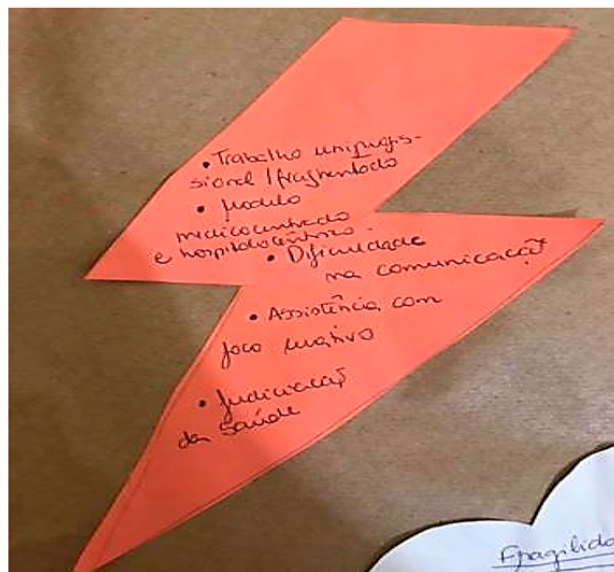 • Trabalho uniprofis-
sional / fragmentado
• Modelo
medicocentrado
e hospitalocêntrico.
• Dificuldade
na comunicação
• Assistência com
foco curativo
• Judicicação
da saúde
Fragilida